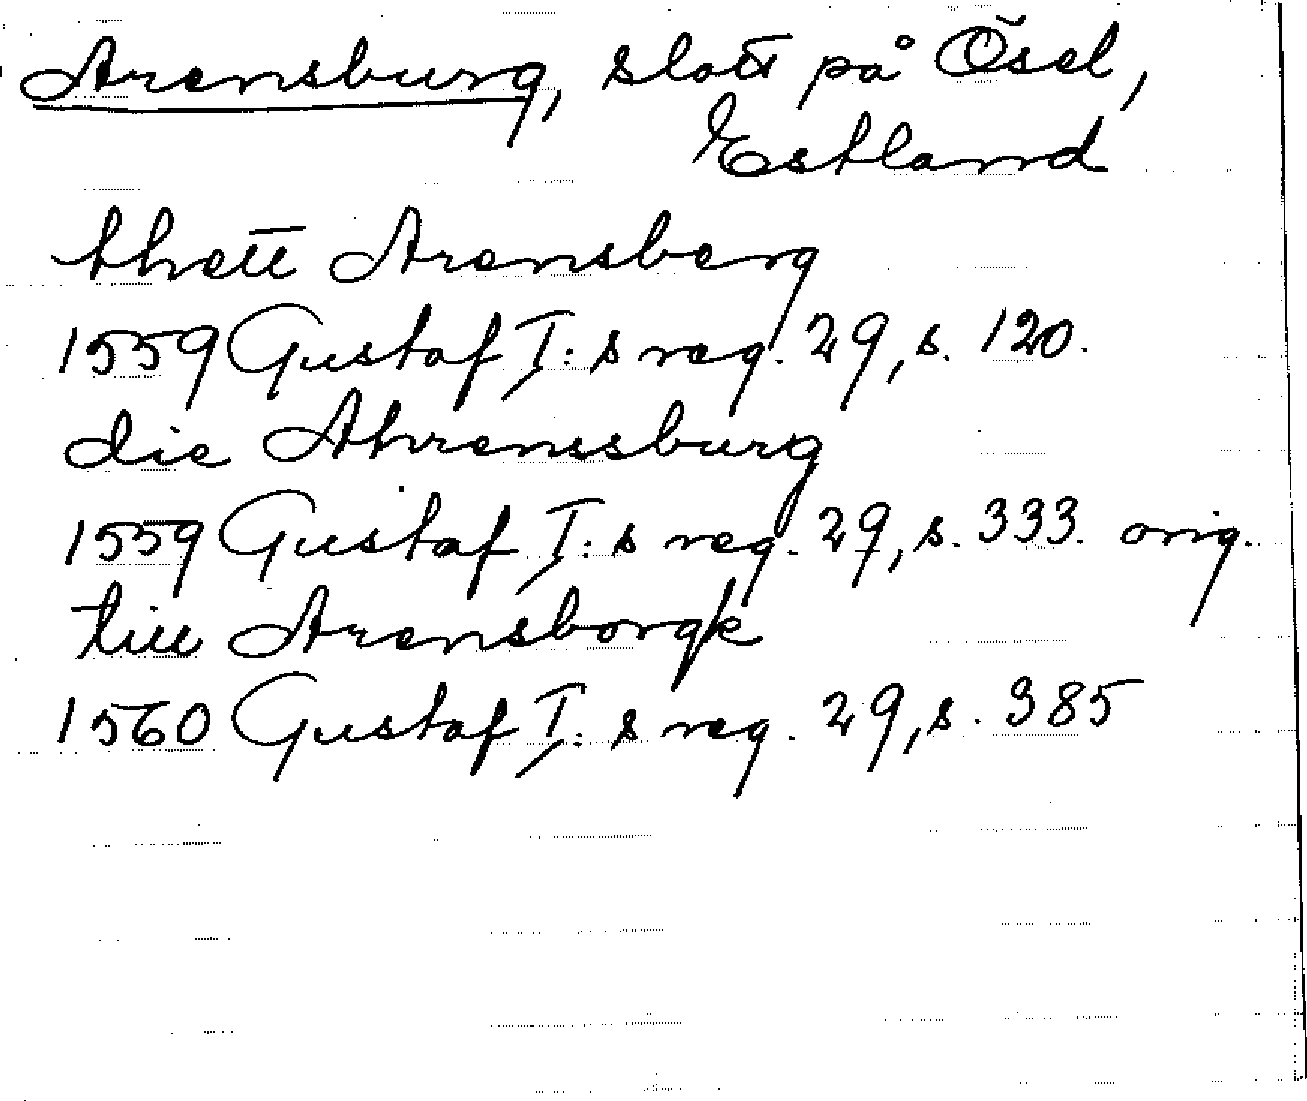 Arensburg, slott på Ösel,
Estland
thett Arensberg
1559 Gustaf I:s reg. 29, s. 120.
die Ahrenssburg
1559 Gustaf I:s reg. 29, s. 333. orig.
till Arensborgk
1560 Gustaf I:s reg. 29, s. 385